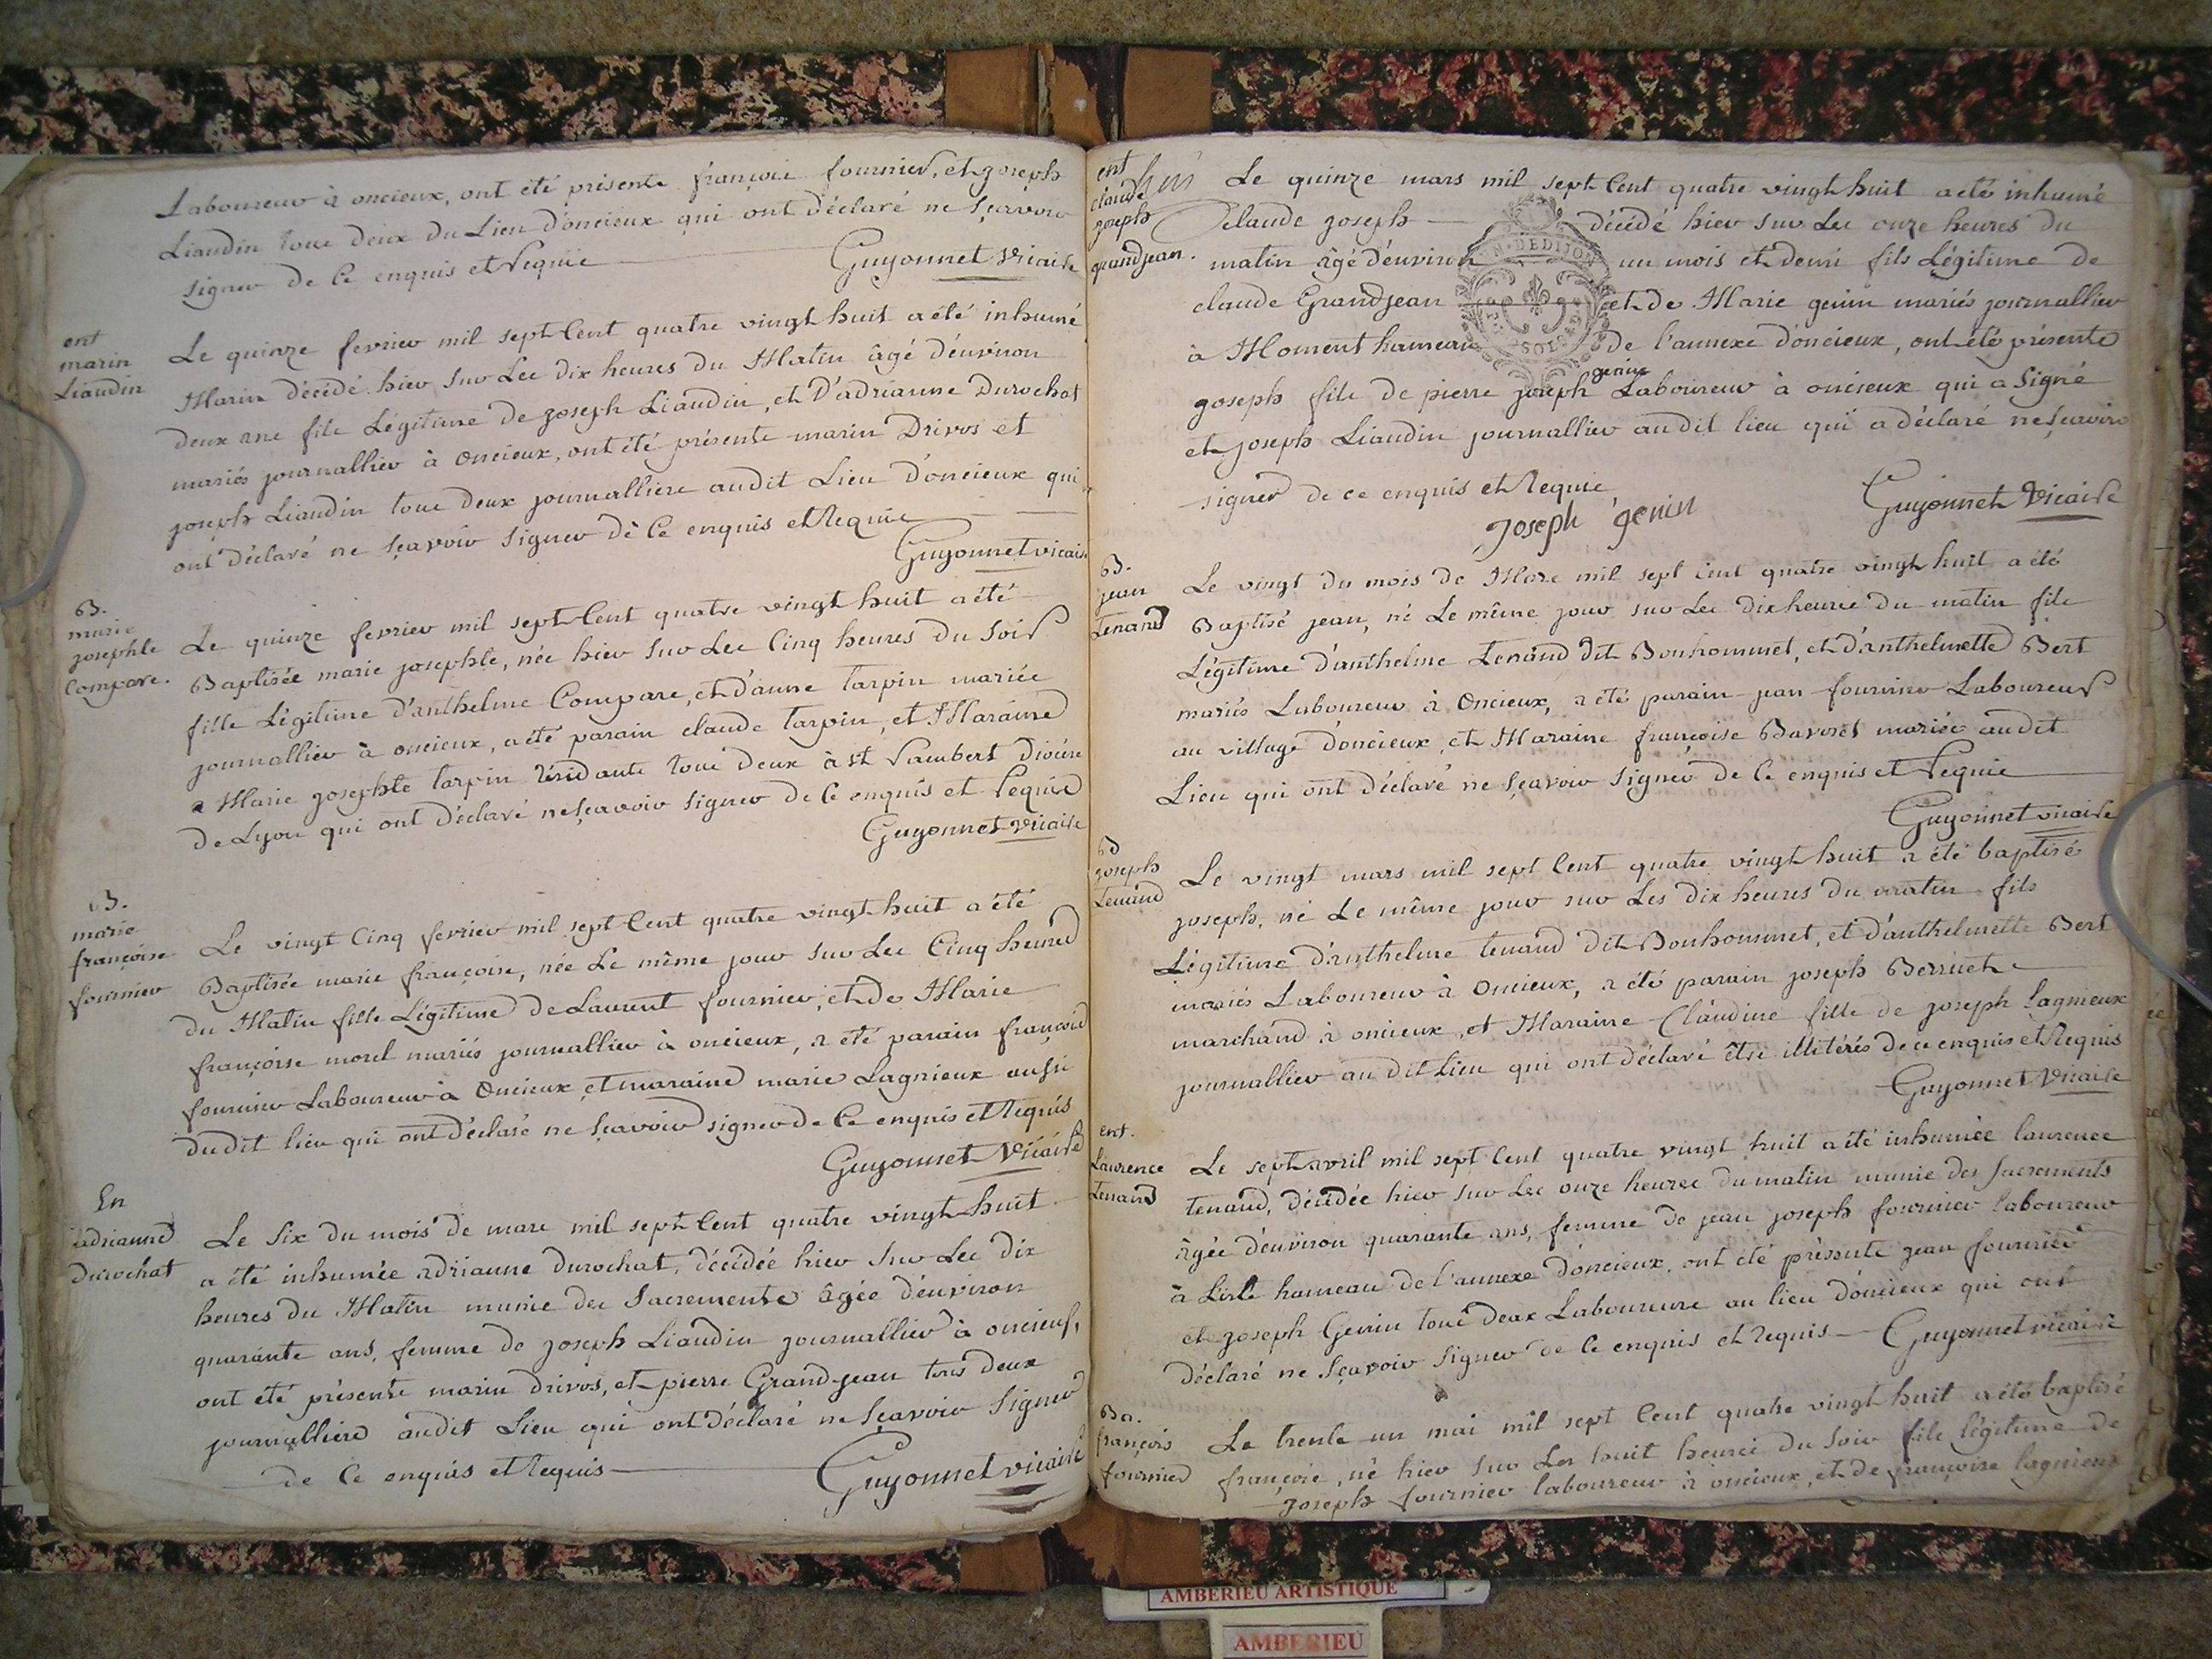 Laboureur à oncieux, ont été présents françois fournier, et joseph
Liaudin tous deux du Lieu d'oncieux qui ont déclaré ne sçavoir
signer de ce enquis et requis
Guyonnet vicaire
ent
marin
Liaudin
Le quinze fevrier mil sept Cent quatre vingt huit a été inhumé
Marin décédé hier sur Les dix heures du Matin âgé d'environ
deux ans fils Légitime de joseph Liaudin, et D'adrianne Durochat
mariés journallier à oncieux, ont été présents marin Drivos et
joseph Liaudin tous deux journalliers audit Lieu D'oncieux qui
ont déclaré ne sçavoir signer de Ce enquis et requis
Guyonnet vicaire
B.
marie
josephte
Compare.
Le quinze fevrier mil sept Cent quatre vingt huit a été
Baptisée marie josephte, née hier sur Les Cinq heures du soir
fille Légitime d'anthelme Compare, et d'anne tarpin mariés
journallier à oncieux, a été parain claude tarpin, et Maraine
Marie josephte tarpin résidants tous deux à st Rambert diocèse
de Lyon qui ont déclaré ne sçavoir signer de Ce enquis et requis
Guyonnet vicaire
B.
marie
françoise
fournier
Le vingt Cinq fevrier mil sept Cent quatre vingt huit a été
Baptisée marie françoise, née Le même jour sur Les Cinq heures
du Matin fille Légitime de Laurent fournier, et de Marie
françoise morel mariés journallier à oncieux, a été parain françois
fournier Laboureur à Oncieux et maraine marie Lagnieux aussi
dudit lieu qui ont déclaré ne sçavoir signer de Ce enquis et requis
Guyonnet Vicaire
En
adrianne
Durochat
Le six du mois de mars mil sept Cent quatre vingt huit
a été inhumée adrianne durochat, décédée hier sur Les dix
heures du Matin munie des Sacrements âgée d'environ
quarante ans, femme de joseph Liaudin journallier à oncieux,
ont été présents marin drivos, et pierre Grandjean tous deux
journalliers audit Lieu qui ont déclaré ne sçavoir signer
de Ce enquis et requis
Guyonnet vicaire
ent
claude
joseph
grandjean.
Le quinze mars mil sept Cent quatre vingt huit a été inhumé
claude joseph décédé hier sur Les onze heures du
matin âgé d'environ un mois et demi fils Légitime de
claude Grandjean et de Marie genin mariés journallier
à Moment hameau de l'annexe d'oncieux, ont été présents
genin
joseph fils de pierre joseph Laboureur à oncieux qui a signé
et joseph Liaudin journallier audit lieu qui a déclaré ne sçavoir
signer de ce enquis et requis
Joseph genin
Guyonnet Vicaire
B.
jean
tenand
Le vingt du mois de Mars mil sept cent quatre vingt huit a été
Baptisé jean, né Le même jour sur Les dix heures du matin fils
Légitime d'anthelme tenand dit Bonhommet, et d'anthelmette Bert
mariés Laboureur à Oncieux, a été parain jean fournier Laboureur
au village d'oncieux, et Maraine françoise Bavoret mariée audit
Lieu qui ont déclaré ne sçavoir signer de Ce enquis et requis
Guyonnet vicaire
B
joseph
tenand
Le vingt mars mil sept Cent quatre vingt huit a été baptisé
joseph, né Le même jour sur Les dix heures du matin fils
Légitime d'anthelme tenand dit Bonhommet, et d'anthelmette Bert
mariés Laboureur à Oncieux, a été parain joseph Berruet
marchand à oncieux, et Maraine Claudine fille de joseph Lagnieux
journallier audit Lieu qui ont déclaré être illitérés de ce enquis et requis
Guyonnet Vicaire
ent.
Laurence
tenand
Le sept avril mil sept Cent quatre vingt huit a été inhumée laurence
tenand, décédée hier sur Les onze heures du matin munie des Sacrements
âgée d'environ quarante ans, femme de jean joseph fournier laboureur
à L'isle hameau de l'annexe d'oncieux, ont été présents jean fournier
et joseph Genin tous deux Laboureurs au lieu d'oncieux qui ont
déclaré ne sçavoir signer de Ce enquis et requis Guyonnet vicaire
Ba.
françois
fournier
Le trente un mai mil sept Cent quatre vingt huit a été baptisé
françois, né hier sur Les huit heures du soir fils légitime de
joseph fournier laboureur à oncieux, et de françoise lagnieux
AMBERIEU ARTISTIQUE
AMBERIEU